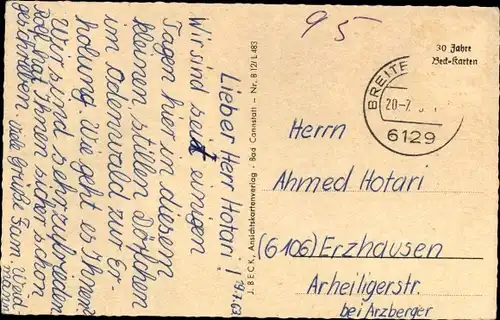 95
30 Jahre
Beck-Karten
BREITE
20-7.
6129
Herrn
Ahmed Hotari
(6106) Erzhausen
Arheiligerstr.
bei Arzberger
J. BECK, Ansichtskartenverlag · Bad Cannstatt - Nr. B 12/L 483
Lieber Herr Hotari!
Wir sind seit einigen
Tagen hier in diesem
kleinen stillen Dörfchen
im Odenwald zur Er-
holung. Wie geht es Ihnen?
Wir sind sehr zufrieden
Rolf hat Ihnen sicher schon
geschrieben. viele Grüße Fam.